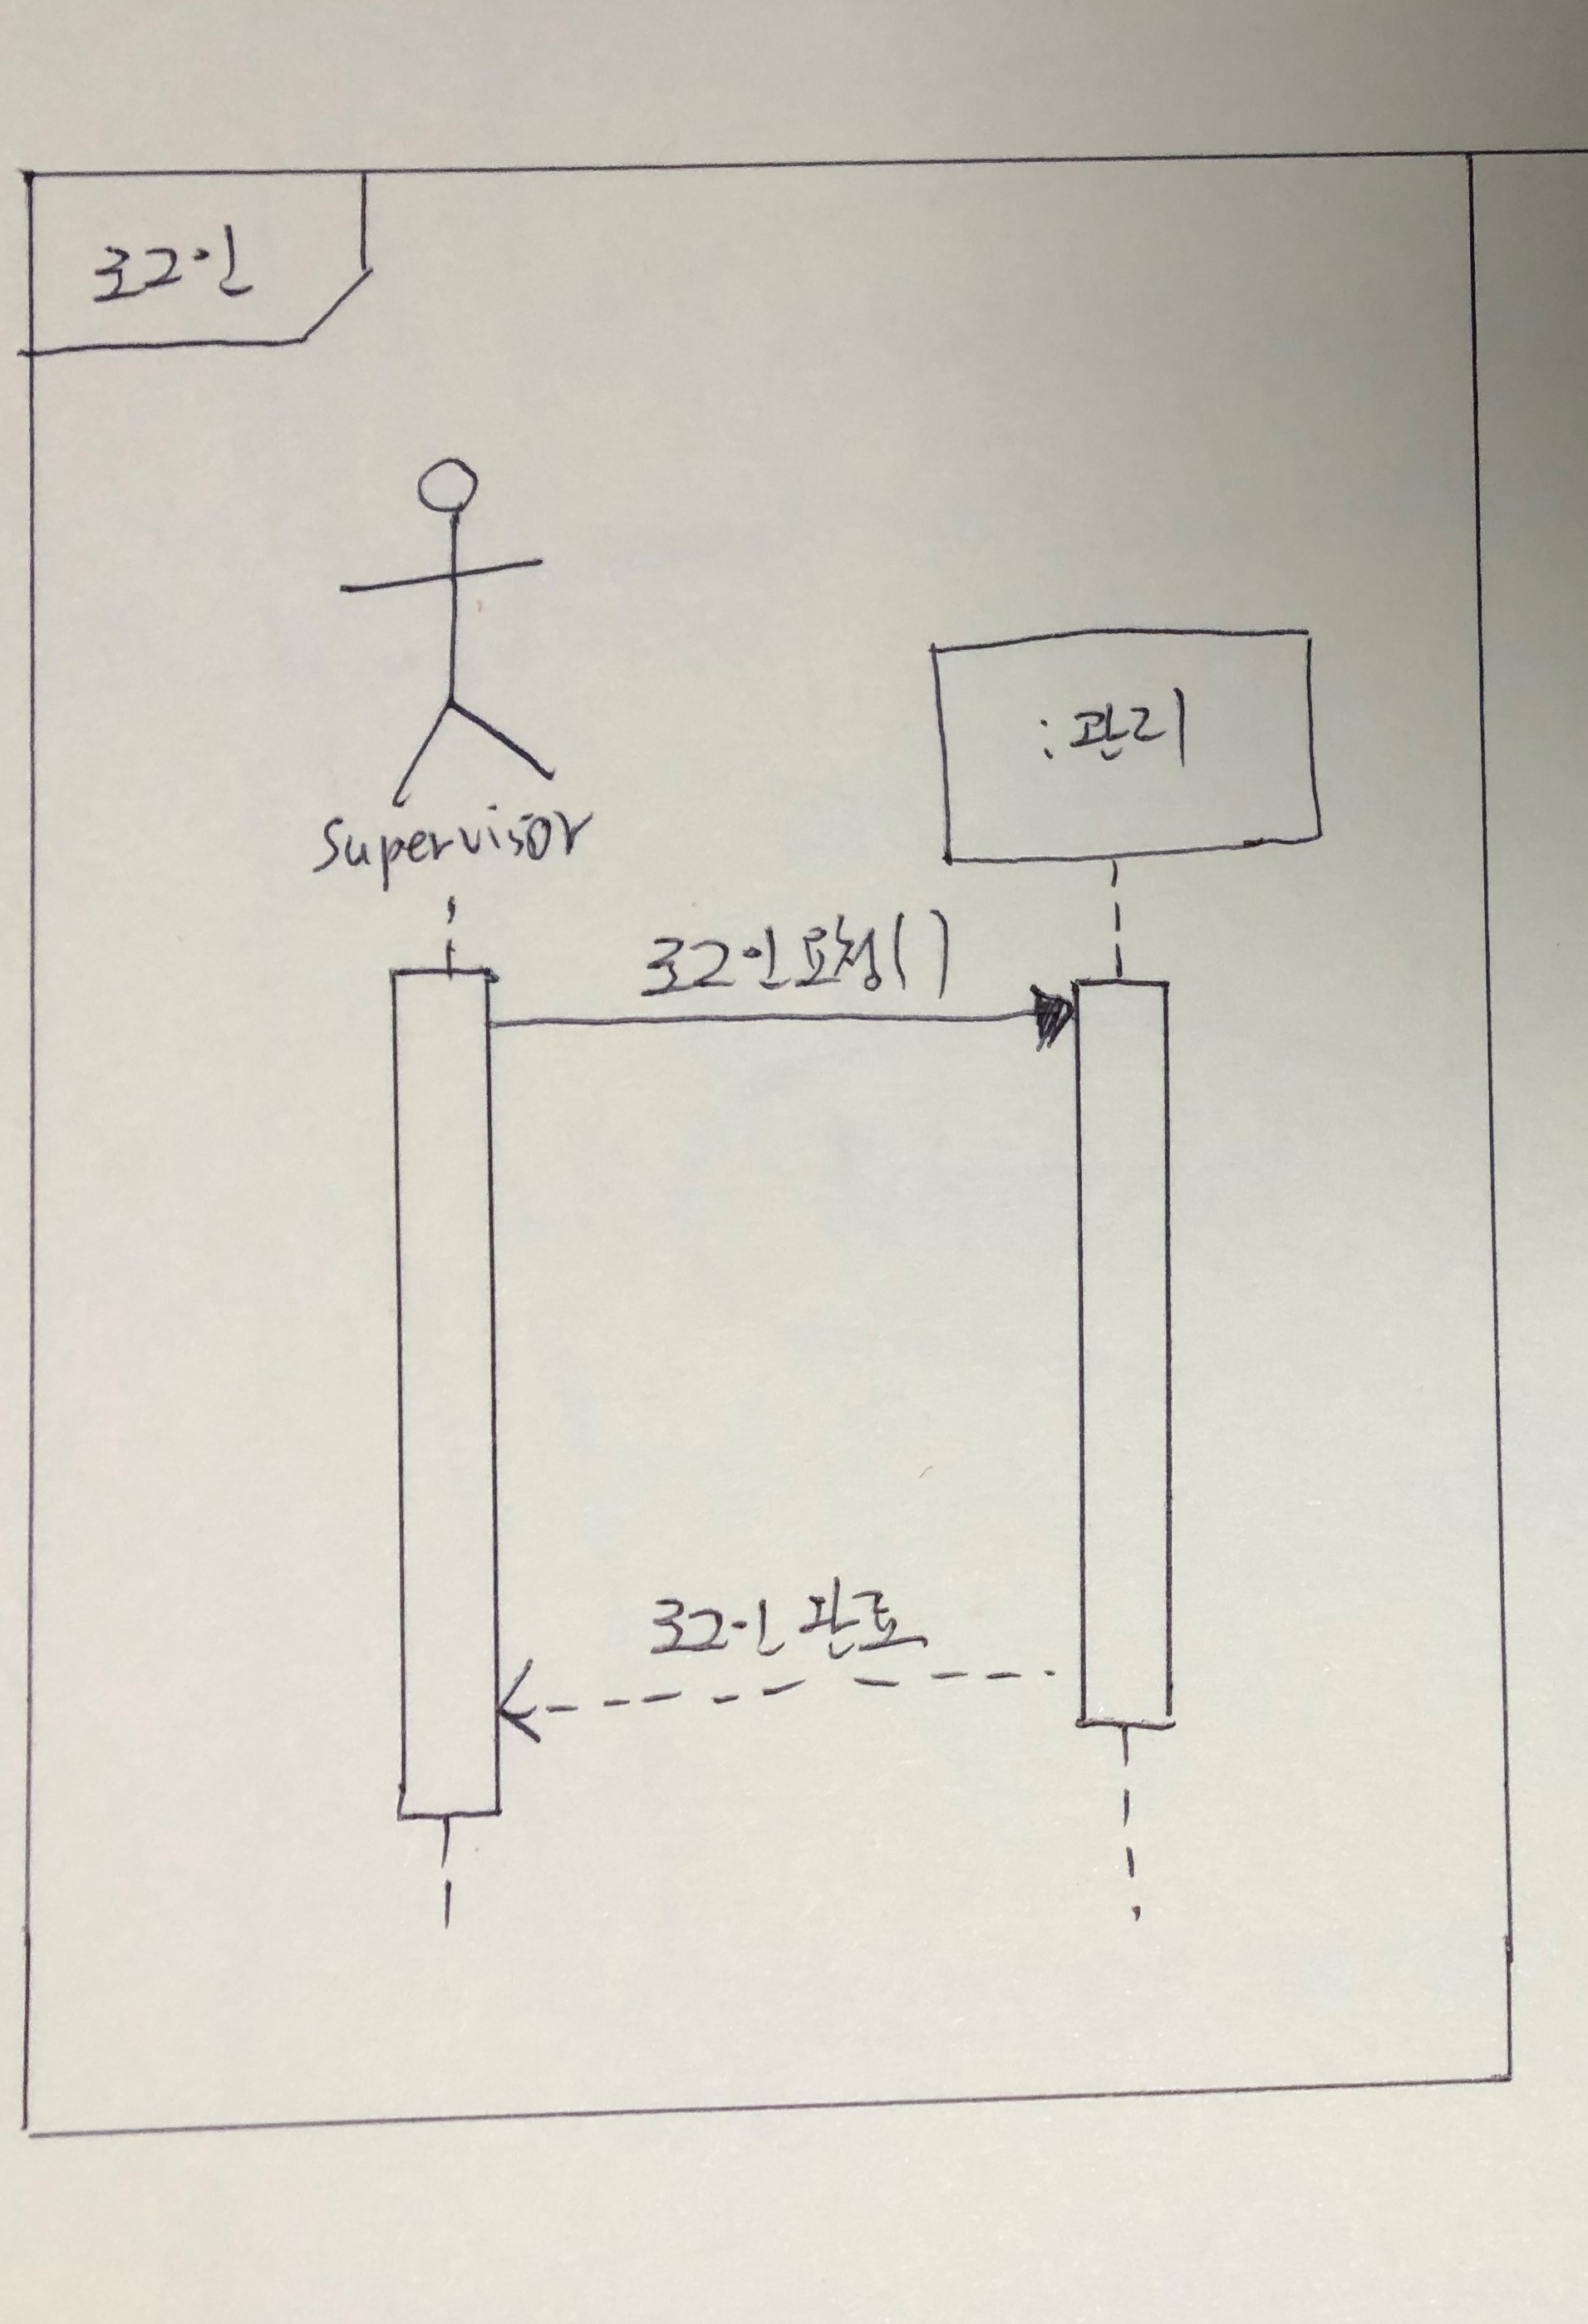 로그인
Supervisor
:관리
로그인요청()
로그인 완료